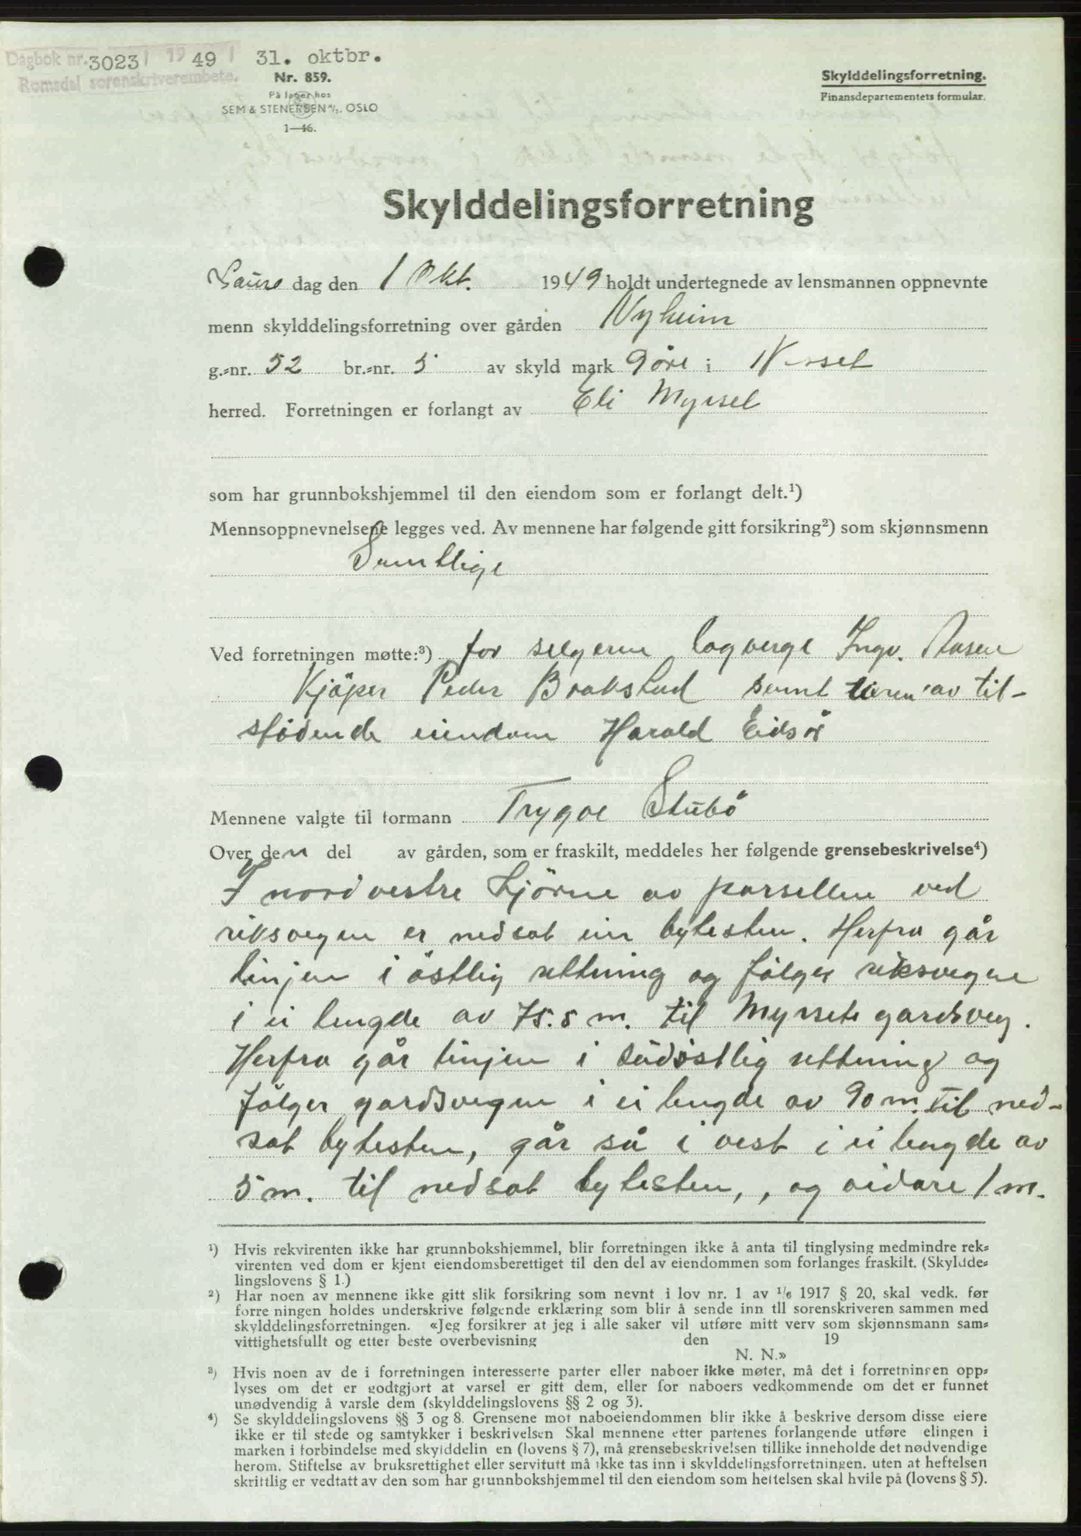 Dagbok nr. 3023 / 19 49 / 31. oktbr.
Romsdal sorenskriverembete.
Nr. 859.
På lager hos
SEM & STENERSEN A/S. OSLO
1—46.
Skylddelingsforretning.
Finansdepartementets formular.
Skylddelingsforretning
Laur dag den 1 Okt. 1949 holdt undertegnede av lensmannen oppnevnte
menn skylddelingsforretning over gården Nyheim
g.-nr. 52 br.-nr. 5 av skyld mark 9 øre i Nesset
herred. Forretningen er forlangt av Eli Myrset
som har grunnbokshjemmel til den eiendom som er forlangt delt.¹)
Mennsoppnevnelsene legges ved. Av mennene har følgende gitt forsikring²) som skjønnsmenn
Samtlige
Ved forretningen møtte:³) for selgeren lagverge Ingv. Aasen
Kjöper Peder Brakstad samt av til-
stödende eiendom Harald Eidsö
Mennene valgte til formann Trygve Stubö
Over den del av gården, som er fraskilt, meddeles her følgende grensebeskrivelse⁴)
I nordvestre hjörne av parsellen ved
riksvegen er nedsat ein bytesten. Herfra går
linjen i östlig rettning og fölger riksvegen
i ei lengde av 75.5 m. til Myrsets gardsveg.
Herfra går linjen i südöstlig rettning og
fölger gardsvegen i ei lengde av 90 m. til ned-
sat bytesten, går så i vest i ei lengde av
5 m. til nedsat bytesten, , og vidare 1 m.
¹) Hvis rekvirenten ikke har grunnbokshjemmel, blir forretningen ikke å anta til tinglysing medmindre rek-
virenten ved dom er kjent eiendomsberettiget til den del av eiendommen som forlanges fraskilt. (Skyldde-
lingslovens § 1.)
²) Har noen av mennene ikke gitt slik forsikring som nevnt i lov nr. 1 av 1/6 1917 § 20, skal vedk. før
forretningen holdes underskrive følgende erklæring som blir å sende inn til sorenskriveren sammen med
skylddelingsforretningen. «Jeg forsikrer at jeg i alle saker vil utføre mitt verv som skjønnsmann sam-
vittighetsfullt og etter beste overbevisning den 19
N. N.»
³) Hvis noen av de i forretningen interesserte parter eller naboer ikke møter, må det i forretningen opp-
lyses om det er godtgjort at varsel er gitt dem, eller for naboers vedkommende om det er funnet
unødvendig å varsle dem (skylddelingslovens §§ 2 og 3).
⁴) Se skylddelingslovens §§ 3 og 8. Grensene mot naboeiendommen blir ikke å beskrive dersom disse eiere
ikke er til stede og samtykker i beskrivelsen Skal mennene etter partenes forlangende utføre elingen i
marken i forbindelse med skylddelin en (lovens § 7), må grensebeskrivelsen tillike inneholde det nødvendige
herom. Stiftelse av bruksrettighet eller servitutt må ikke tas inn i skylddelingsforretningen. uten at heftelsen
skriftlig er vedtatt av den som har grunnbokshjemmel til den eiendom som heftelsen skal hvile på (lovens § 5).